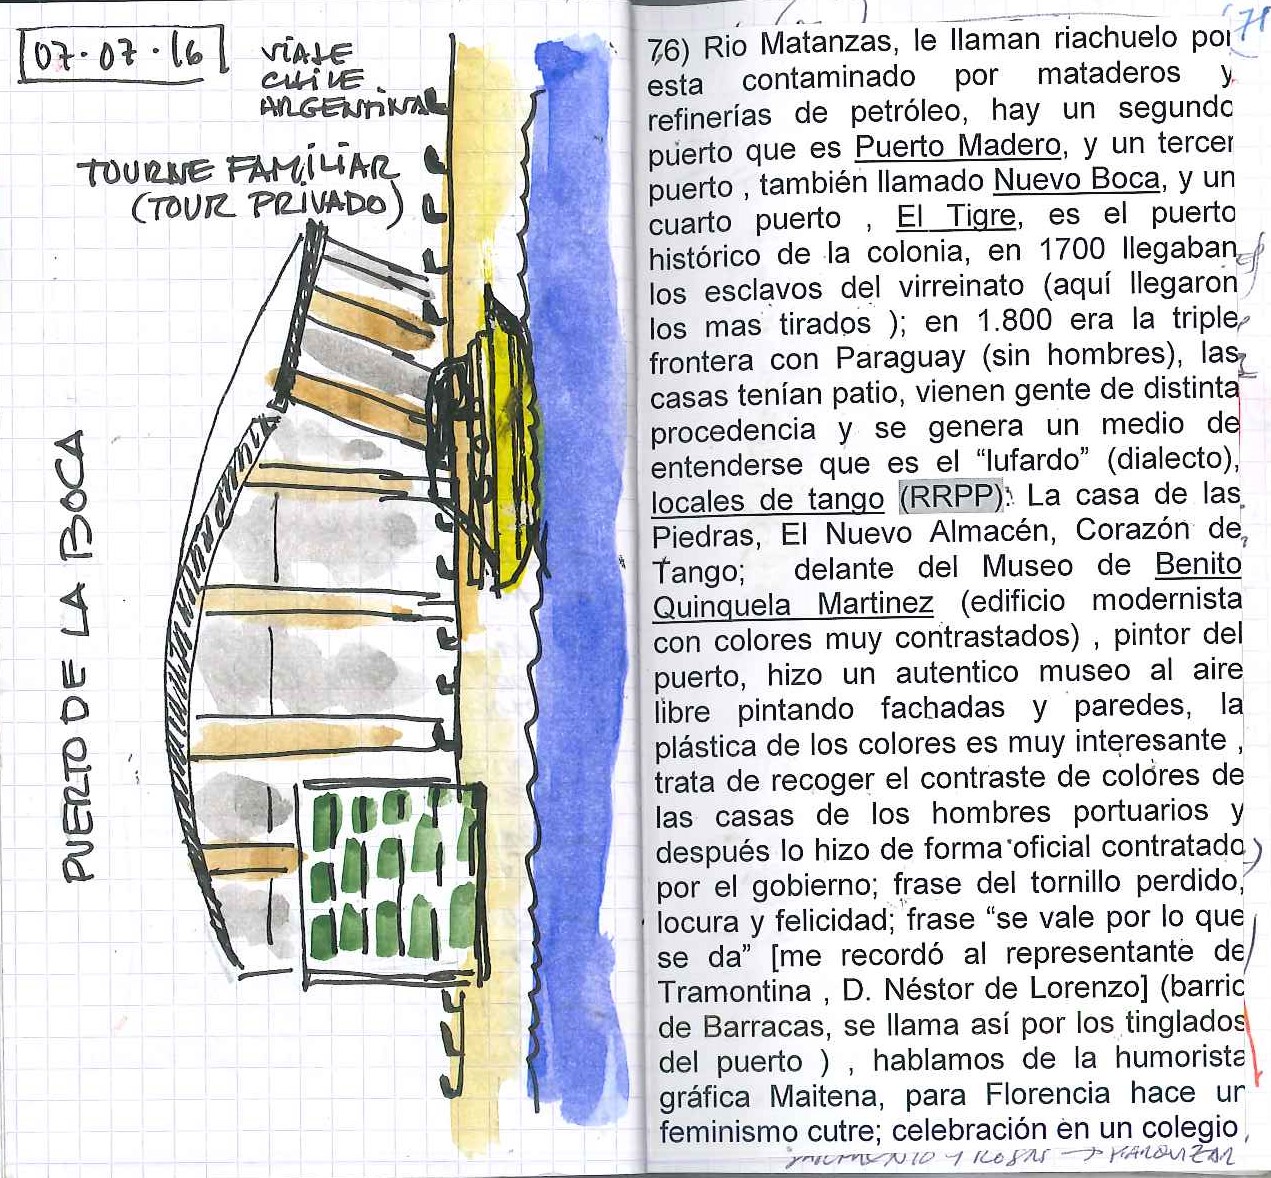 07·07·16
VIAJE
CHILE
ARGENTINA
TOURNE FAMILIAR
(TOUR PRIVADO)
PUERTO DE LA BOCA
71
76) Rio Matanzas, le llaman riachuelo por
esta contaminado por mataderos y
refinerías de petróleo, hay un segundo
puerto que es Puerto Madero, y un tercer
puerto , también llamado Nuevo Boca, y un
cuarto puerto , El Tigre, es el puerto
histórico de la colonia, en 1700 llegaban
los esclavos del virreinato (aquí llegaron
los mas tirados ); en 1.800 era la triple
frontera con Paraguay (sin hombres), las
casas tenían patio, vienen gente de distinta
procedencia y se genera un medio de
entenderse que es el “lufardo” (dialecto),
locales de tango (RRPP): La casa de las
Piedras, El Nuevo Almacén, Corazón de
Tango; delante del Museo de Benito
Quinquela Martinez (edificio modernista
con colores muy contrastados) , pintor del
puerto, hizo un autentico museo al aire
libre pintando fachadas y paredes, la
plástica de los colores es muy interesante ,
trata de recoger el contraste de colores de
las casas de los hombres portuarios y
después lo hizo de forma oficial contratado
por el gobierno; frase del tornillo perdido,
locura y felicidad; frase “se vale por lo que
se da” [me recordó al representante de
Tramontina , D. Néstor de Lorenzo] (barrio
de Barracas, se llama así por los tinglados
del puerto ) , hablamos de la humorista
gráfica Maitena, para Florencia hace un
feminismo cutre; celebración en un colegio